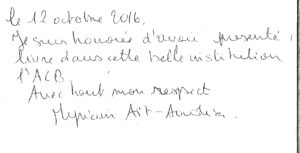 le 12 octobre 2016.
Je suis honorée d'avoir présenté 1
livre dans cette belle institution
l'ACB
Avec tout mon respect
Myriam Aït-